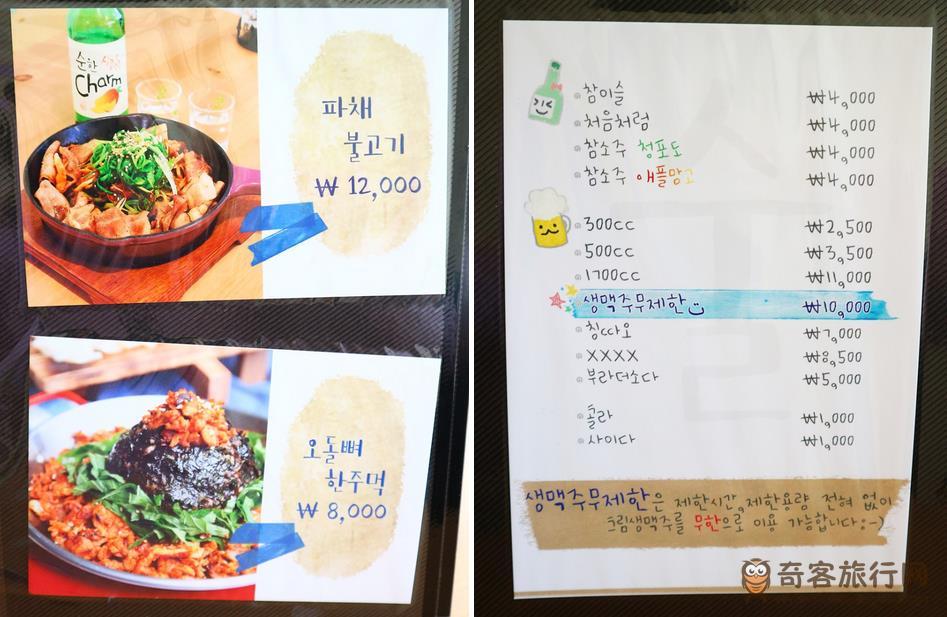 순한
Charm
파채
불고기
₩ 12,000
오돌뼈
한주먹
₩ 8,000
참이슬 ₩4,000
처음처럼 ₩4,000
참소주 청포도 ₩4,000
참소주 애플망고 ₩4,000
300cc ₩2,500
500cc ₩3,500
1700cc ₩11,000
생맥주무제한 ₩10,000
칭따오 ₩7,000
XXXX ₩8,500
부라더소다 ₩5,000
콜라 ₩1,000
사이다 ₩1,000
생맥주무제한은 제한시간, 제한용량 전혀 없이
크림생맥주를 무한으로 이용 가능합니다 :-)
奇客旅行网